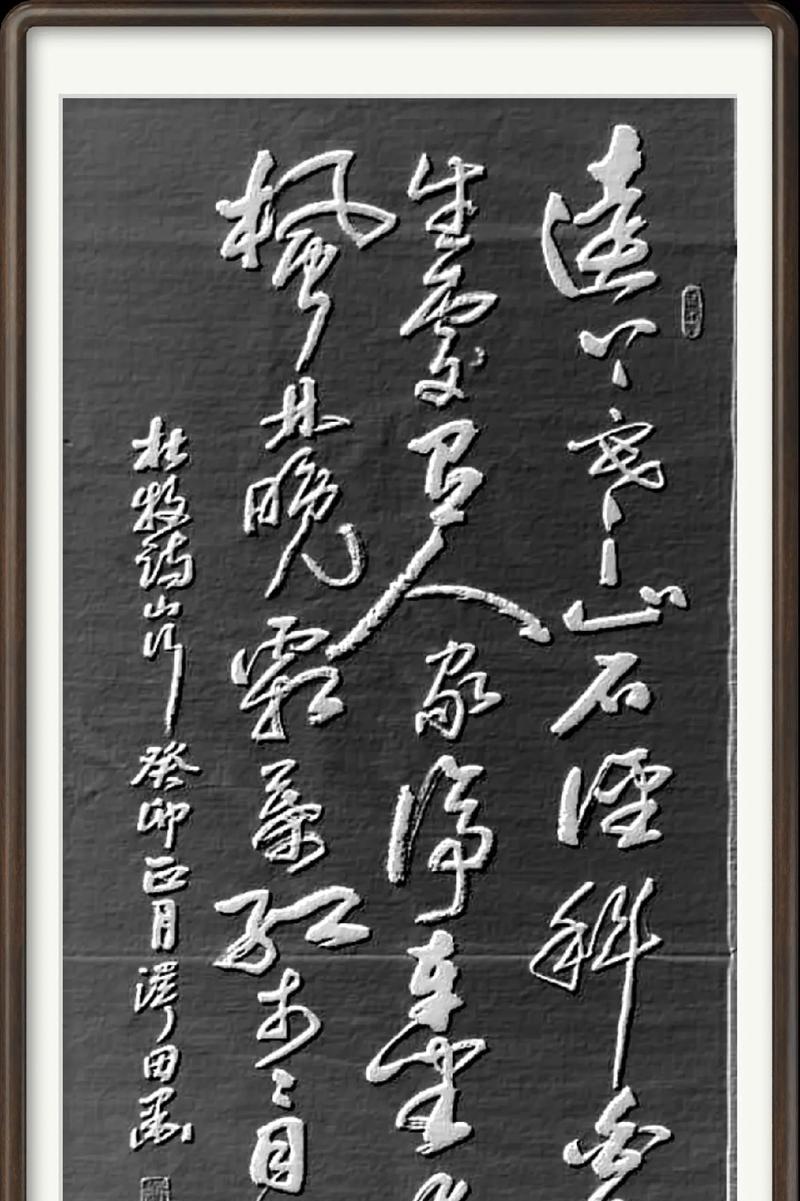 遠上寒山石徑斜白
生處有人家停車坐
楓林晚霜葉紅於二月
杜牧詩山行癸卯正月澤田